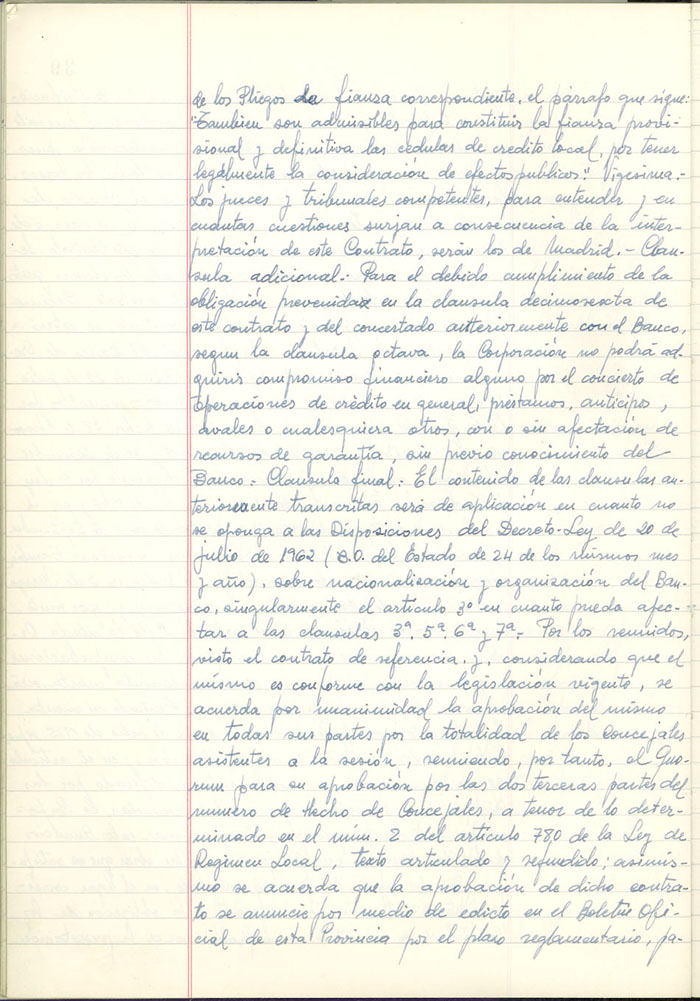 de los Pliegos de fianza correspondiente, el párrafo que sigue:
"Tambien son admisibles para constituir la fianza provi-
sional y definitiva las cedulas de credito local, por tener
legalmente la consideración de efectos publicos." Vigesima.-
Los jueces y tribunales competentes, para entender y en
cuantas cuestiones surjan a consecuencia de la inter-
pretación de este Contrato, serán los de Madrid.- Clau-
sula adicional.- Para el debido cumplimiento de la
obligación prevenida en la clausula decimosexta de
este contrato y del concertado anteriormente con el Banco,
segun la clausula octava, la Corporación no podrá ad-
quirir compromiso financiero alguno por el concierto de
operaciones de crédito en general, préstamos, anticipos,
avales o cualesquiera otros, con o sin afectación de
recursos de garantía, sin previo conocimiento del
Banco.- Clausula final.- El contenido de las clausulas an-
teriormente transcritas será de aplicación en cuanto no
se oponga a las Disposiciones del Decreto-Ley de 20 de
julio de 1962 (B.O. del Estado de 24 de los mismos mes
y año), sobre nacionalización y organización del Ban-
co, singularmente el artículo 3º en cuanto pueda afec-
tar a las clausulas 3ª. 5ª. 6ª y 7ª.- Por los reunidos,
visto el contrato de referencia, y, considerando que el
mismo es conforme con la legislación vigente, se
acuerda por unanimidad la aprobación del mismo
en todas sus partes por la totalidad de los Concejales
asistentes a la sesión, reuniendo, por tanto, el Quo-
rum para su aprobación por las dos terceras partes del
numero de Hecho de Concejales, a tenor de lo deter-
minado en el núm. 2 del artículo 780 de la Ley de
Regimen Local, texto articulado y refundido; asimis-
mo se acuerda que la aprobación de dicho contra-
to se anuncie por medio de edicto en el Boletin Ofi-
cial de esta Provincia por el plazo reglamentario, pa-